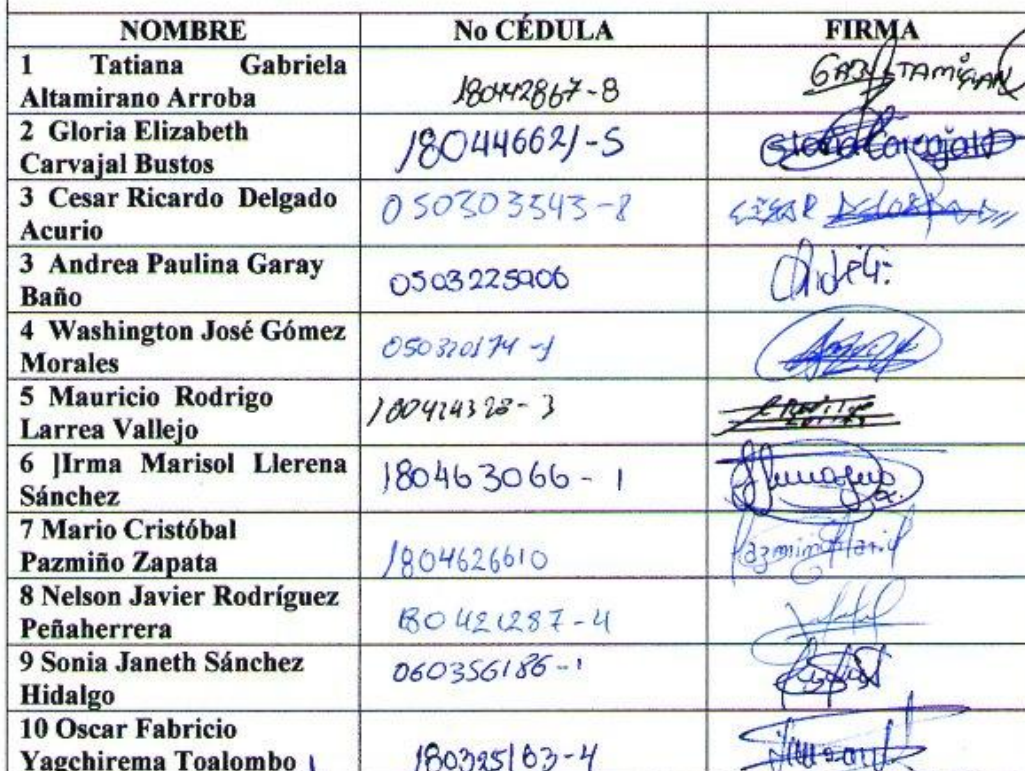 NOMBRE No CÉDULA FIRMA
1 Tatiana Gabriela
Altamirano Arroba
180442867-8
2 Gloria Elizabeth
Carvajal Bustos
180446621-5 Gloria Carvajal
3 Cesar Ricardo Delgado
Acurio
050303543-8 CESAR DELGADO
3 Andrea Paulina Garay
Baño
0503225906
4 Washington José Gómez
Morales
5 Mauricio Rodrigo
Larrea Vallejo
180424328-3
6 ]Irma Marisol Llerena
Sánchez
180463066-1
7 Mario Cristóbal
Pazmiño Zapata
1804626610 Pazmiño Mario
8 Nelson Javier Rodríguez
Peñaherrera
180421287-4
9 Sonia Janeth Sánchez
Hidalgo
060356186-1
10 Oscar Fabricio
Yagchirema Toalombo
180325183-4